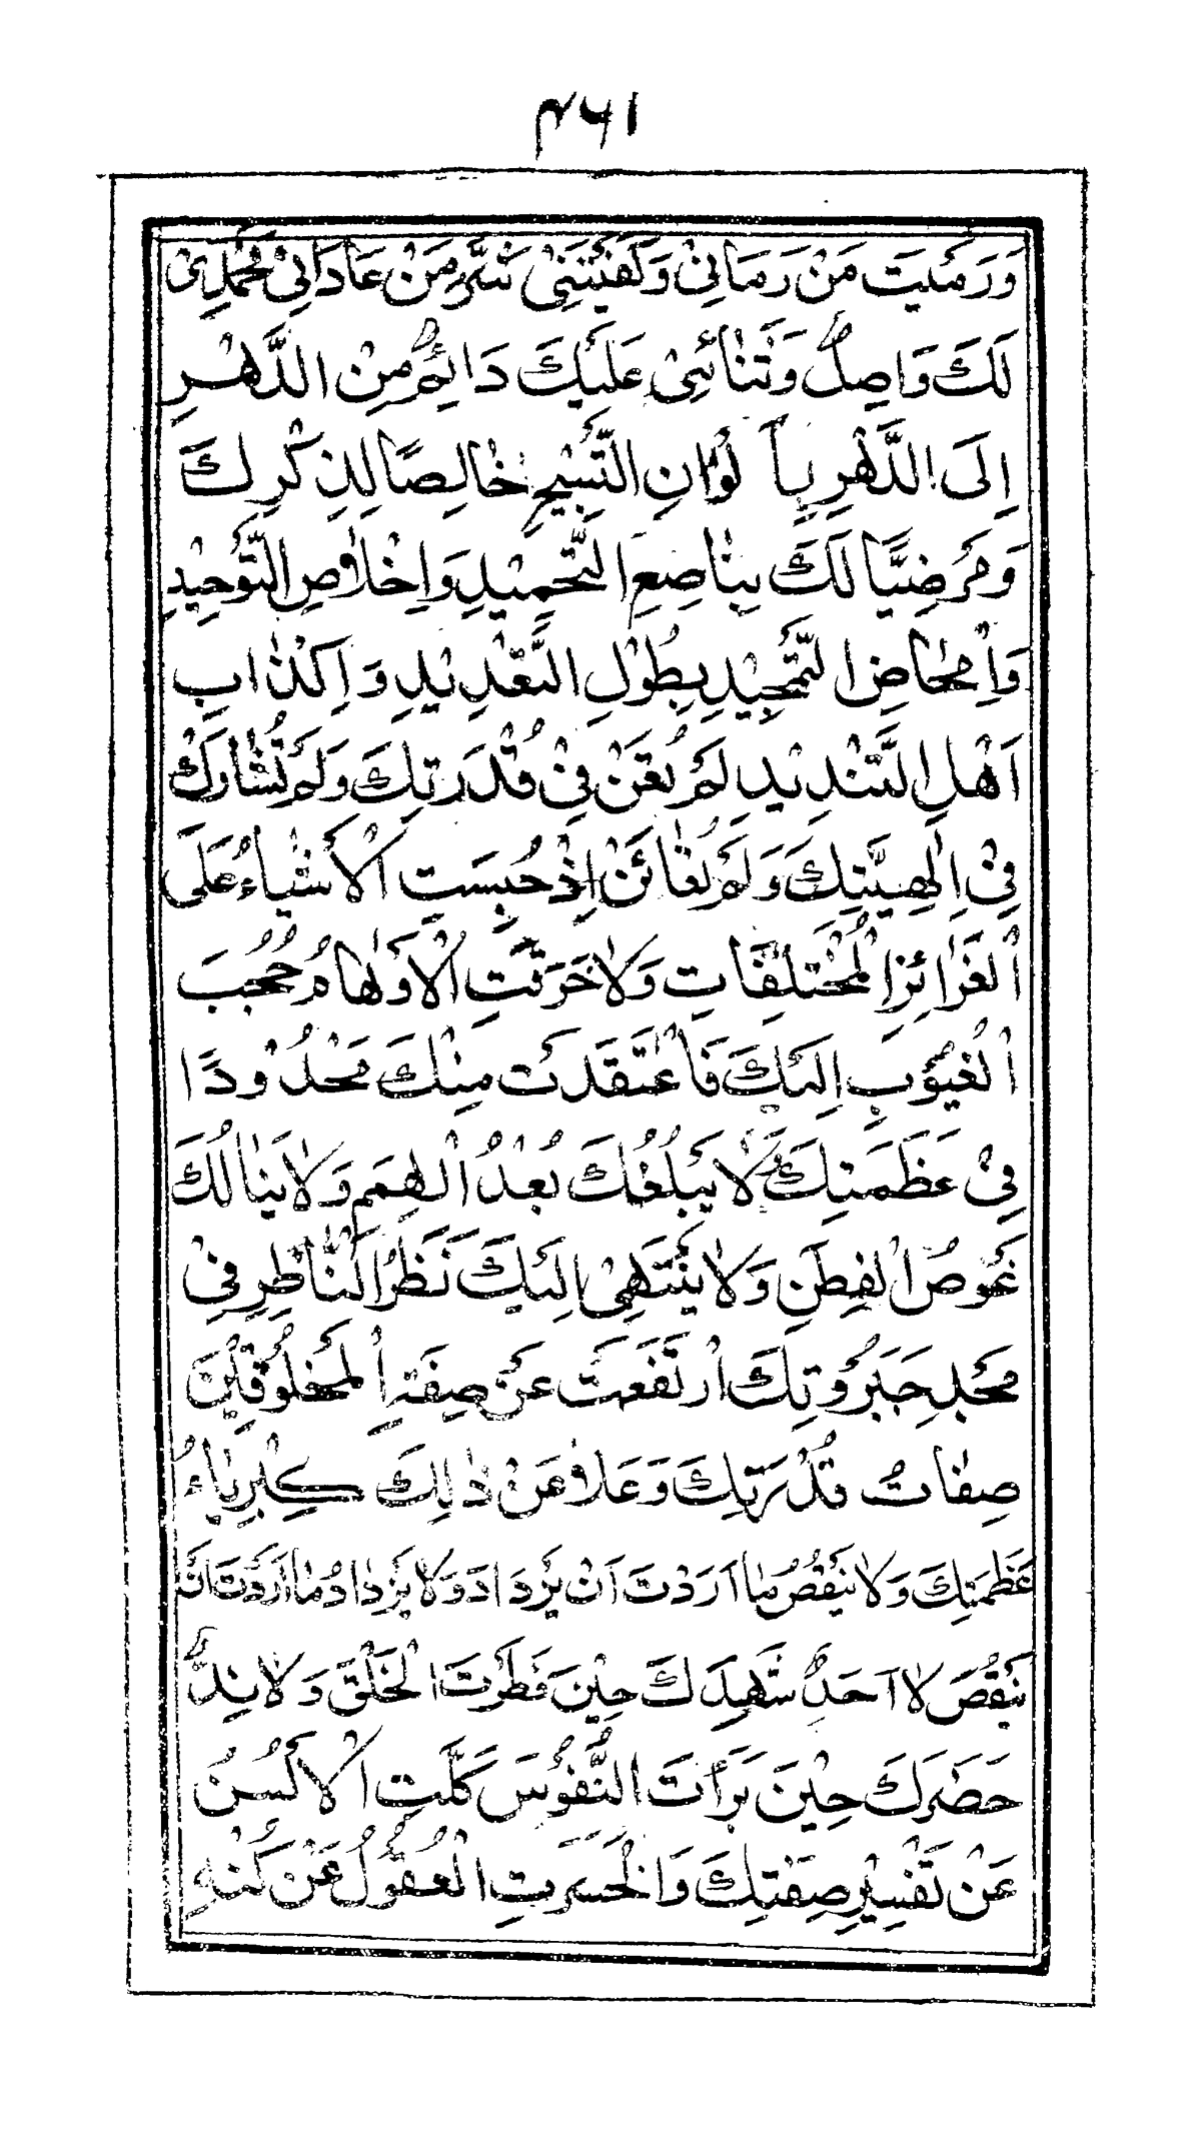 ۱۶۳
وَرَمَيْتَ مَنْ رَمَانِيْ وَكَفَيْتَنِيْ شَرَّ مَنْ عَادَانِيْ فَحَمْدِيْ
لَكَ وَاصِلٌ وَثَنَائِيْ عَلَيْكَ دَائِمٌ مِنَ الدَّهْرِ
اِلَى الدَّهْرِ بِاَلْوَانِ التَّسْبِيْحِ خَالِصًا لِذِكْرِكَ
وَمَرْضِيًّا لَكَ بِنَاصِعِ التَّحْمِيْدِ وَاِخْلَاصِ التَّوْحِيْدِ
وَاِمْحَاضِ التَّمْجِيْدِ بِطُوْلِ التَّعْدِيْدِ وَاِكْذَابِ
اَهْلِ التَّنْدِيْدِ لَمْ تُعَنْ فِيْ قُدْرَتِكَ وَلَمْ تُشَارَكْ
فِيْ اِلٰهِيَّتِكَ وَلَمْ تُعَايَنْ اِذْ حُبِسَتِ الْاَشْيَاءُ عَلَى
الْغَرَائِزِ الْمُخْتَلِفَاتِ وَلَا خَرَقَتِ الْاَوْهَامُ حُجُبَ
الْغُيُوْبِ اِلَيْكَ فَاعْتَقَدَتْ مِنْكَ مَحْدُوْدًا
فِيْ عَظَمَتِكَ لَا يَبْلُغُكَ بُعْدُ الْهِمَمِ وَلَا يَنَالُكَ
غَوْصُ الْفِطَنِ وَلَا يَنْتَهِيْ اِلَيْكَ نَظَرُ النَّاظِرِ فِيْ
مَجْدِ جَبَرُوْتِكَ ارْتَفَعَتْ عَنْ صِفَةِ الْمَخْلُوْقِيْنَ
صِفَاتُ قُدْرَتِكَ وَعَلَا عَنْ ذٰلِكَ كِبْرِيَاءُ
عَظَمَتِكَ وَلَا يَنْقُصُ مَا اَرَدْتَ اَنْ يَزْدَادَ وَلَا يَزْدَادُ مَا اَرَدْتَ اَنْ
يَنْقُصَ لَا اَحَدٌ شَهِدَكَ حِيْنَ فَطَرْتَ الْخَلْقَ وَلَا نِدٌّ
حَضَرَكَ حِيْنَ بَرَأْتَ النُّفُوْسَ كَلَّتِ الْاَلْسُنُ
عَنْ تَفْسِيْرِ صِفَتِكَ وَانْحَسَرَتِ الْعُقُوْلُ عَنْ كُنْهِ